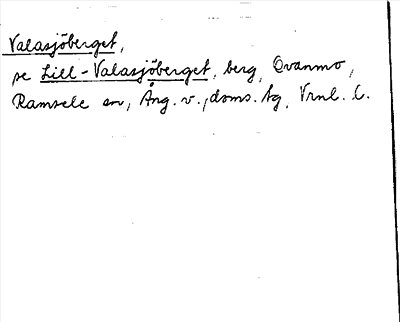 Valasjöberget,
se Lill-Valasjöberget, berg, Qvanmo,
Ramsele sn, Ång. v., doms. tg, Vrnl. l.